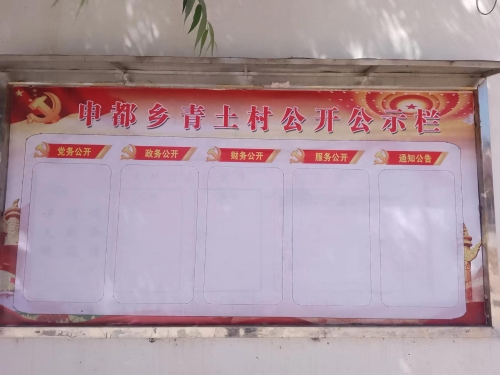 申都乡青土村公开公示栏
党务公开
政务公开
财务公开
服务公开
通知公告